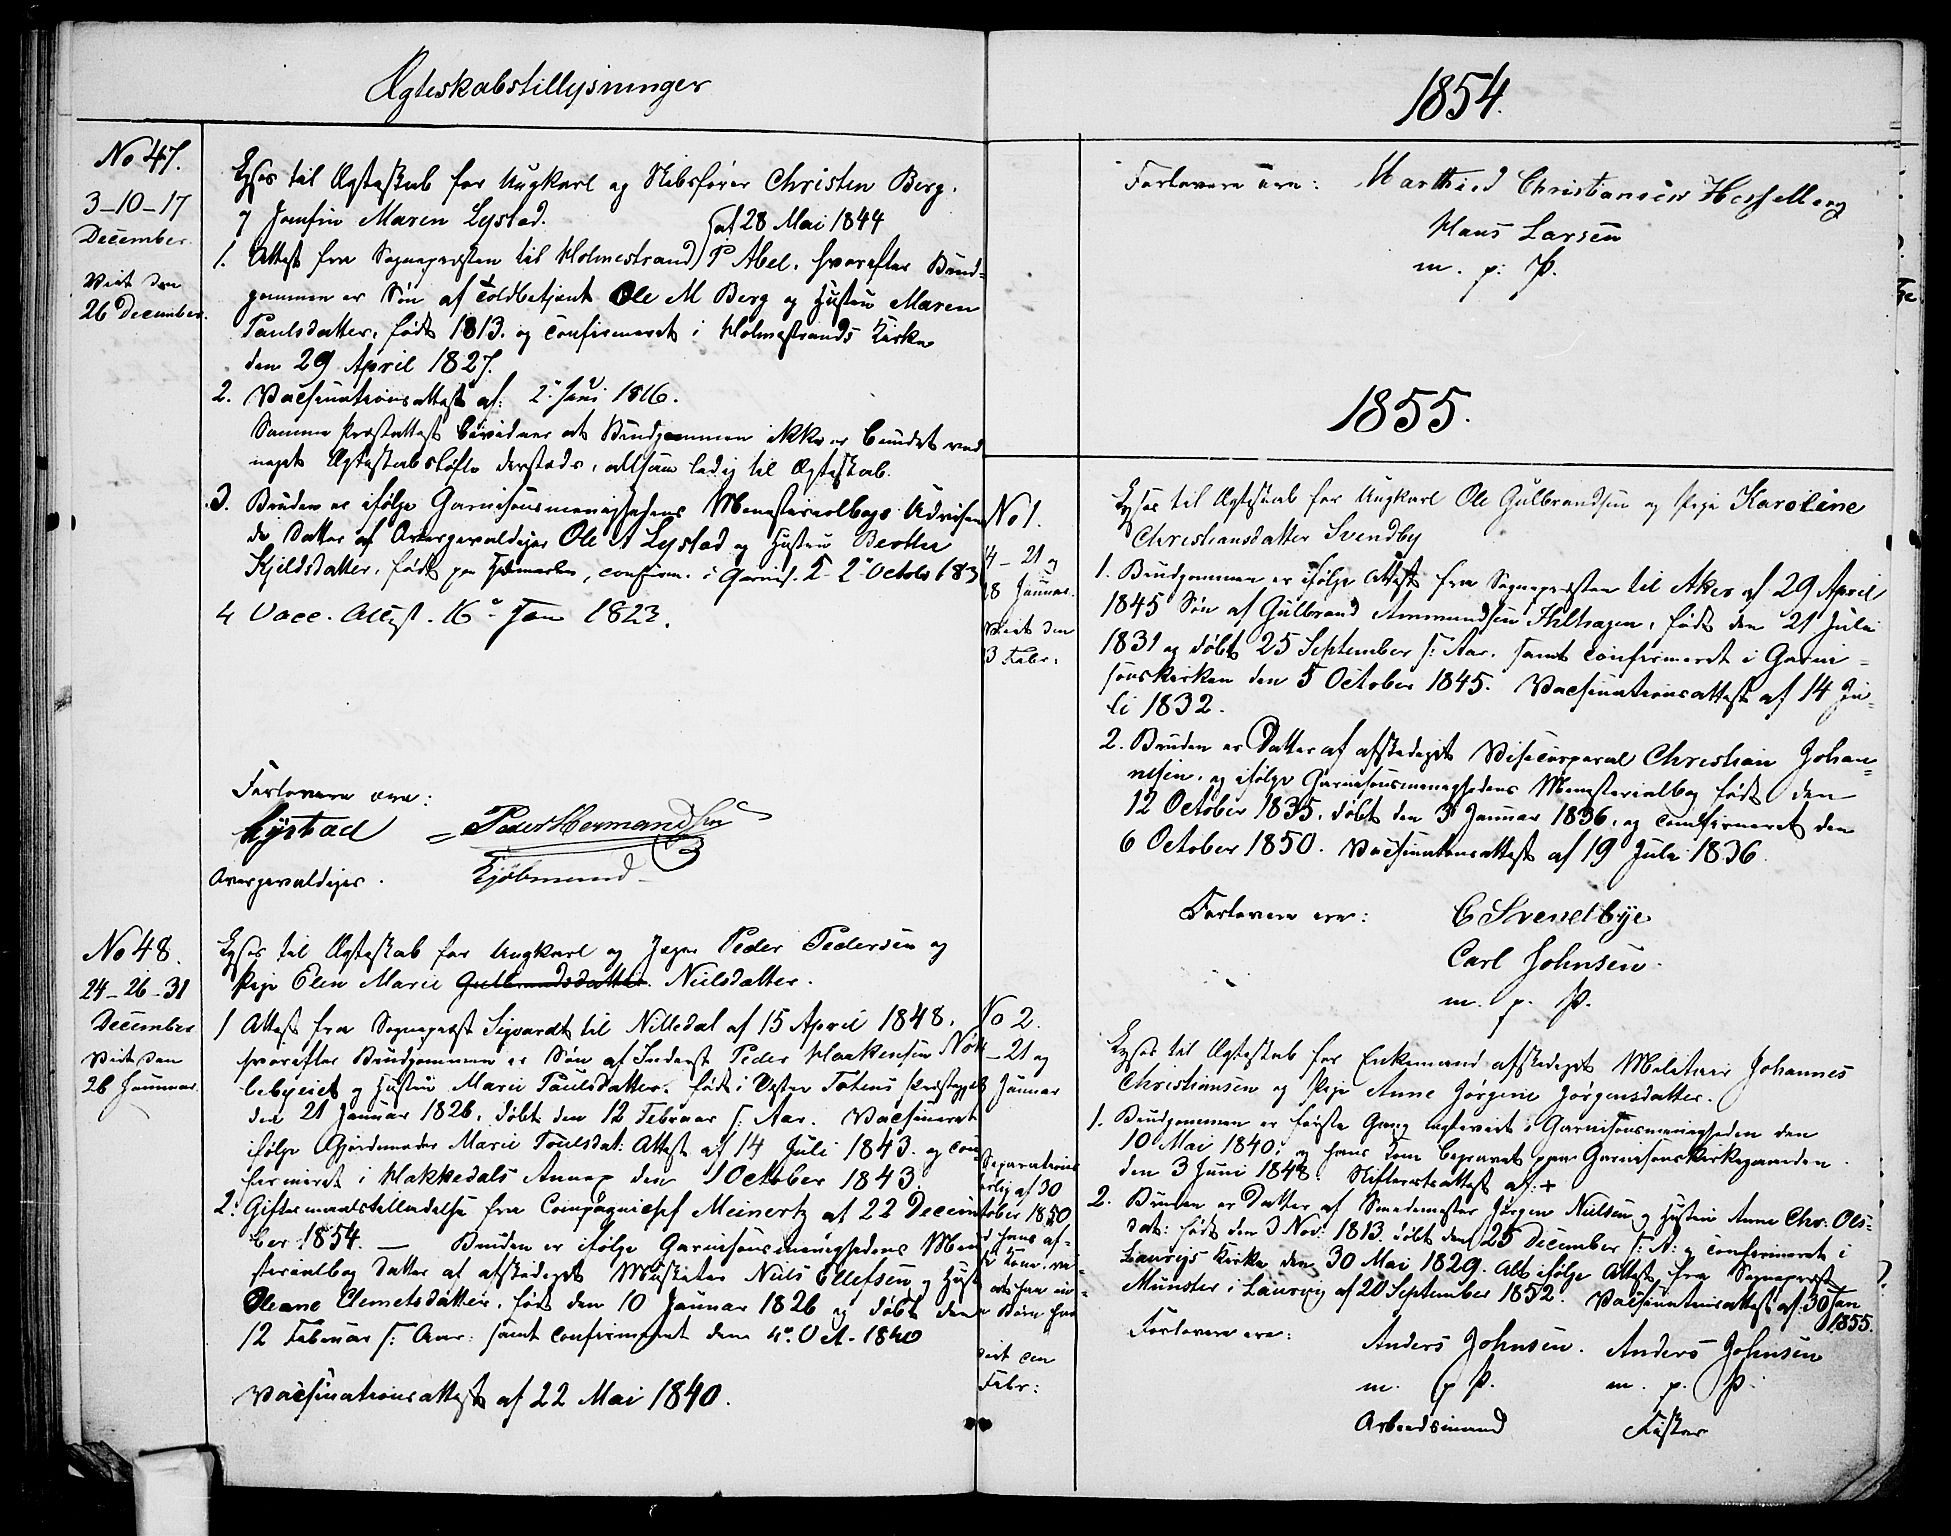 Ægteskabstillysninger
No 47.
3-10-17
December.
Viet den
26 December.
Lyses til Ægteskab for Ungkarl og Skibsfører Christen Berg.
og Jomfru Maren Lystad.
af 28 Mai 1844
1. Attest fra Sognepræsten til Holmestrand P Abel, hvorefter Brud-
gommen er Søn af Toldbetjent Ole M Berg og Hustru Maren
Paulsdatter, født 1813. og confirmeret i Holmestrands Kirke
den 29 April 1827.
2. Vaccinationsattest af: 2 Juni 1816.
Samme Præsteattest bevidner at Brudgommen ikke er bundet ved
noget Ægteskabsløfte dersteds, altsaa ledig til Ægteskab.
3. Bruden er ifølge Garnisonsmenighedens Menesterialbogs Udvisen-
de Datter af Overgevaldiger Ole A Lystad og Hustru Berthe
Kjeldsdatter, født paa Hedmarken, confirm. i Garnis. K. 2 October 183
4 Vacc. Attest. 16 Jan 1823.
Forlovere ere:
Lystad
Overgevaldiger.
Peder Hermandsen
Kjøbmand
No 48.
24-26-31
December
Viet den
26 Januar.
Lyses til Ægteskab for Ungkarl og Jæger Peder Pedersen og
Pige Elen Marie Gulbrandsdatter. Neilsdatter.
1 Attest fra Sognepræst Sigvardt til Nittedal af 15 April 1848,
hvorefter Brudgommen er Søn af Inderst Peder Haakensen Nøk
lebyeiet og Hustru Marie Paulsdatter, født i Vester Totens Præstegjeld
den 21 Januar 1826, døbt den 12 Februar s: Aar. Vaccineret
ifølge Gjordemoder Marie Poulsdat: Attest af 14 Juli 1843. og con-
fermeret i Hakkedals Annex den 1 October 1843.
2. Giftermaalstilladelse fra Compagnichef Meinertz af 22 Decem
ber 1854. — Bruden er ifølge Garnisonsmenighedens Mene
sterialbog Datter af afskediget Musketer Niels Ellefsen og Hust
Oleane Clemetsdatter, født den 10 Januar 1826 og døbt den
12 Februar s: Aar: samt confirmeret den 4. Oct. 1840
Vaccinationsattest af 22 Mai 1840.
1854.
Forlovere ere: Matthied Christiansen Hesselberg
Hans Larsen
m. p: P.
1855.
No 1.
14-21 og
28 Januar.
Viet den
3 Febr.
Lyses til Ægteskab for Ungkarl Ole Gulbrandsen og Pige Karoline
Christiansdatter Svendby
1. Brudgommen er ifølge Attest fra Sognepræsten til Aker af 29 April
1845 Søn af Gulbrand Ammundsen, født den 21 Juli
1831 og døbt 25 September s: Aar, samt confirmeret i Garni-
sonskirken den 5 October 1845. Vaccinationsattest af 14 Ju-
li 1832.
2. Bruden er Datter af afskediget Visecorporal Christian Johan-
nesen, og ifølge Garnisonsmenighedens Menesterialbog født den
12 October 1835, døbt den 3 Januar 1836, og comfirmeret den
6 October 1850. Vaccinationsattest af 19 Juli 1836.
Forlovere ere: C Svendbye
Carl Johnsen.
m. p. P.
No 2.
- 21 og
Januar
Separations
af 30
tober 1850
hans af-
Kone,
Børn
viet den
Febr:
Lyses til Ægteskab for Enkemand afskediget Melitair Johannes
Christiansen og Pige Anne Jørgine Jørgensdatter.
1. Brudgommen er første Gang egteviet i Garnisonsmenigheden den
10 Mai 1840, og hans Kone begravet paa Garnisonskirkegaarden
den 3 Juni 1848. Skifteretsattest af: +
2. Bruden er Datter af Smedemester Jørgen Nielsen og Hustru Anne Chr: Ols-
dat: født den 3 Nov: 1813. døbt den 25 December s: A: og confirmeret i
Laurvigs Kirke den 30 Mai 1829. Alt ifølge Attest fra Sognepræst
Münster i Laurvig af 20 September 1852. Vaccinationsattest af: 30 Jan
1855.
Forlovere ere:
Anders Johnsen. Anders Johnsen
m. p P. m. p. P.
Arbeidsmand Fisker